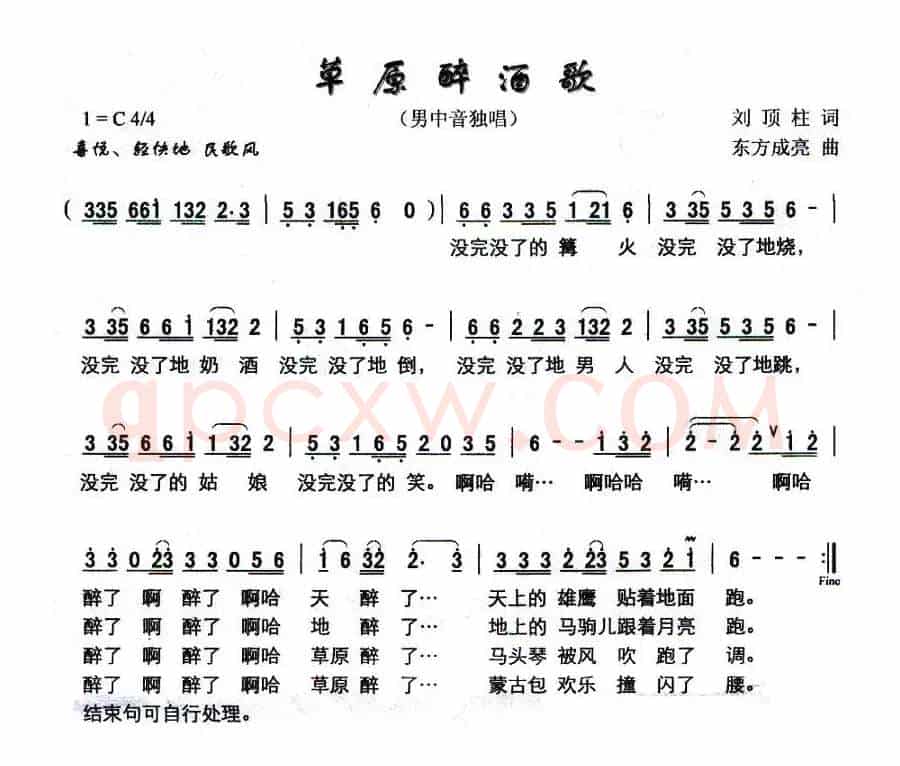 草原醉酒歌
1=C 4/4
（男中音独唱）
刘顶柱 词
喜悦、轻快地 民歌风
东方成亮 曲
( 335 661 132 2·3 | 5 3 165 6 0 ) | 6 6 3 3 5 1 21 6 | 3 35 5 3 5 6 - |
没完没了的 篝 火 没完 没了地烧，
3 35 6 6 1 132 2 | 5 3 1 6 5 6 - | 6 6 2 2 3 132 2 | 3 35 5 3 5 6 - |
没完 没了地 奶 酒 没完 没了地 倒， 没完 没了地 男 人 没完 没了地跳，
3 35 6 6 1 1 32 2 | 5 3 1 6 5 2 0 3 5 | 6 - - 1 3 2 | 2 - 2 2 ∨ 1 2 |
没完 没了的 姑 娘 没完没了的 笑。啊哈 嗬… 啊哈哈 嗬… 啊哈
3 3 0 23 3 3 0 5 6 | 1 6 32 2· 3 | 3 3 3 2 23 5 3 2 1 | 6 - - - :||
Fine
醉了 啊 醉了 啊哈 天 醉 了… 天上的 雄鹰 贴着地面 跑。
醉了 啊 醉了 啊哈 地 醉 了… 地上的 马驹儿跟着月亮 跑。
醉了 啊 醉了 啊哈 草原 醉 了… 马头琴 被风 吹 跑了 调。
醉了 啊 醉了 啊哈 草原 醉 了… 蒙古包 欢乐 撞 闪了 腰。
结束句可自行处理。
qpcxw.COM